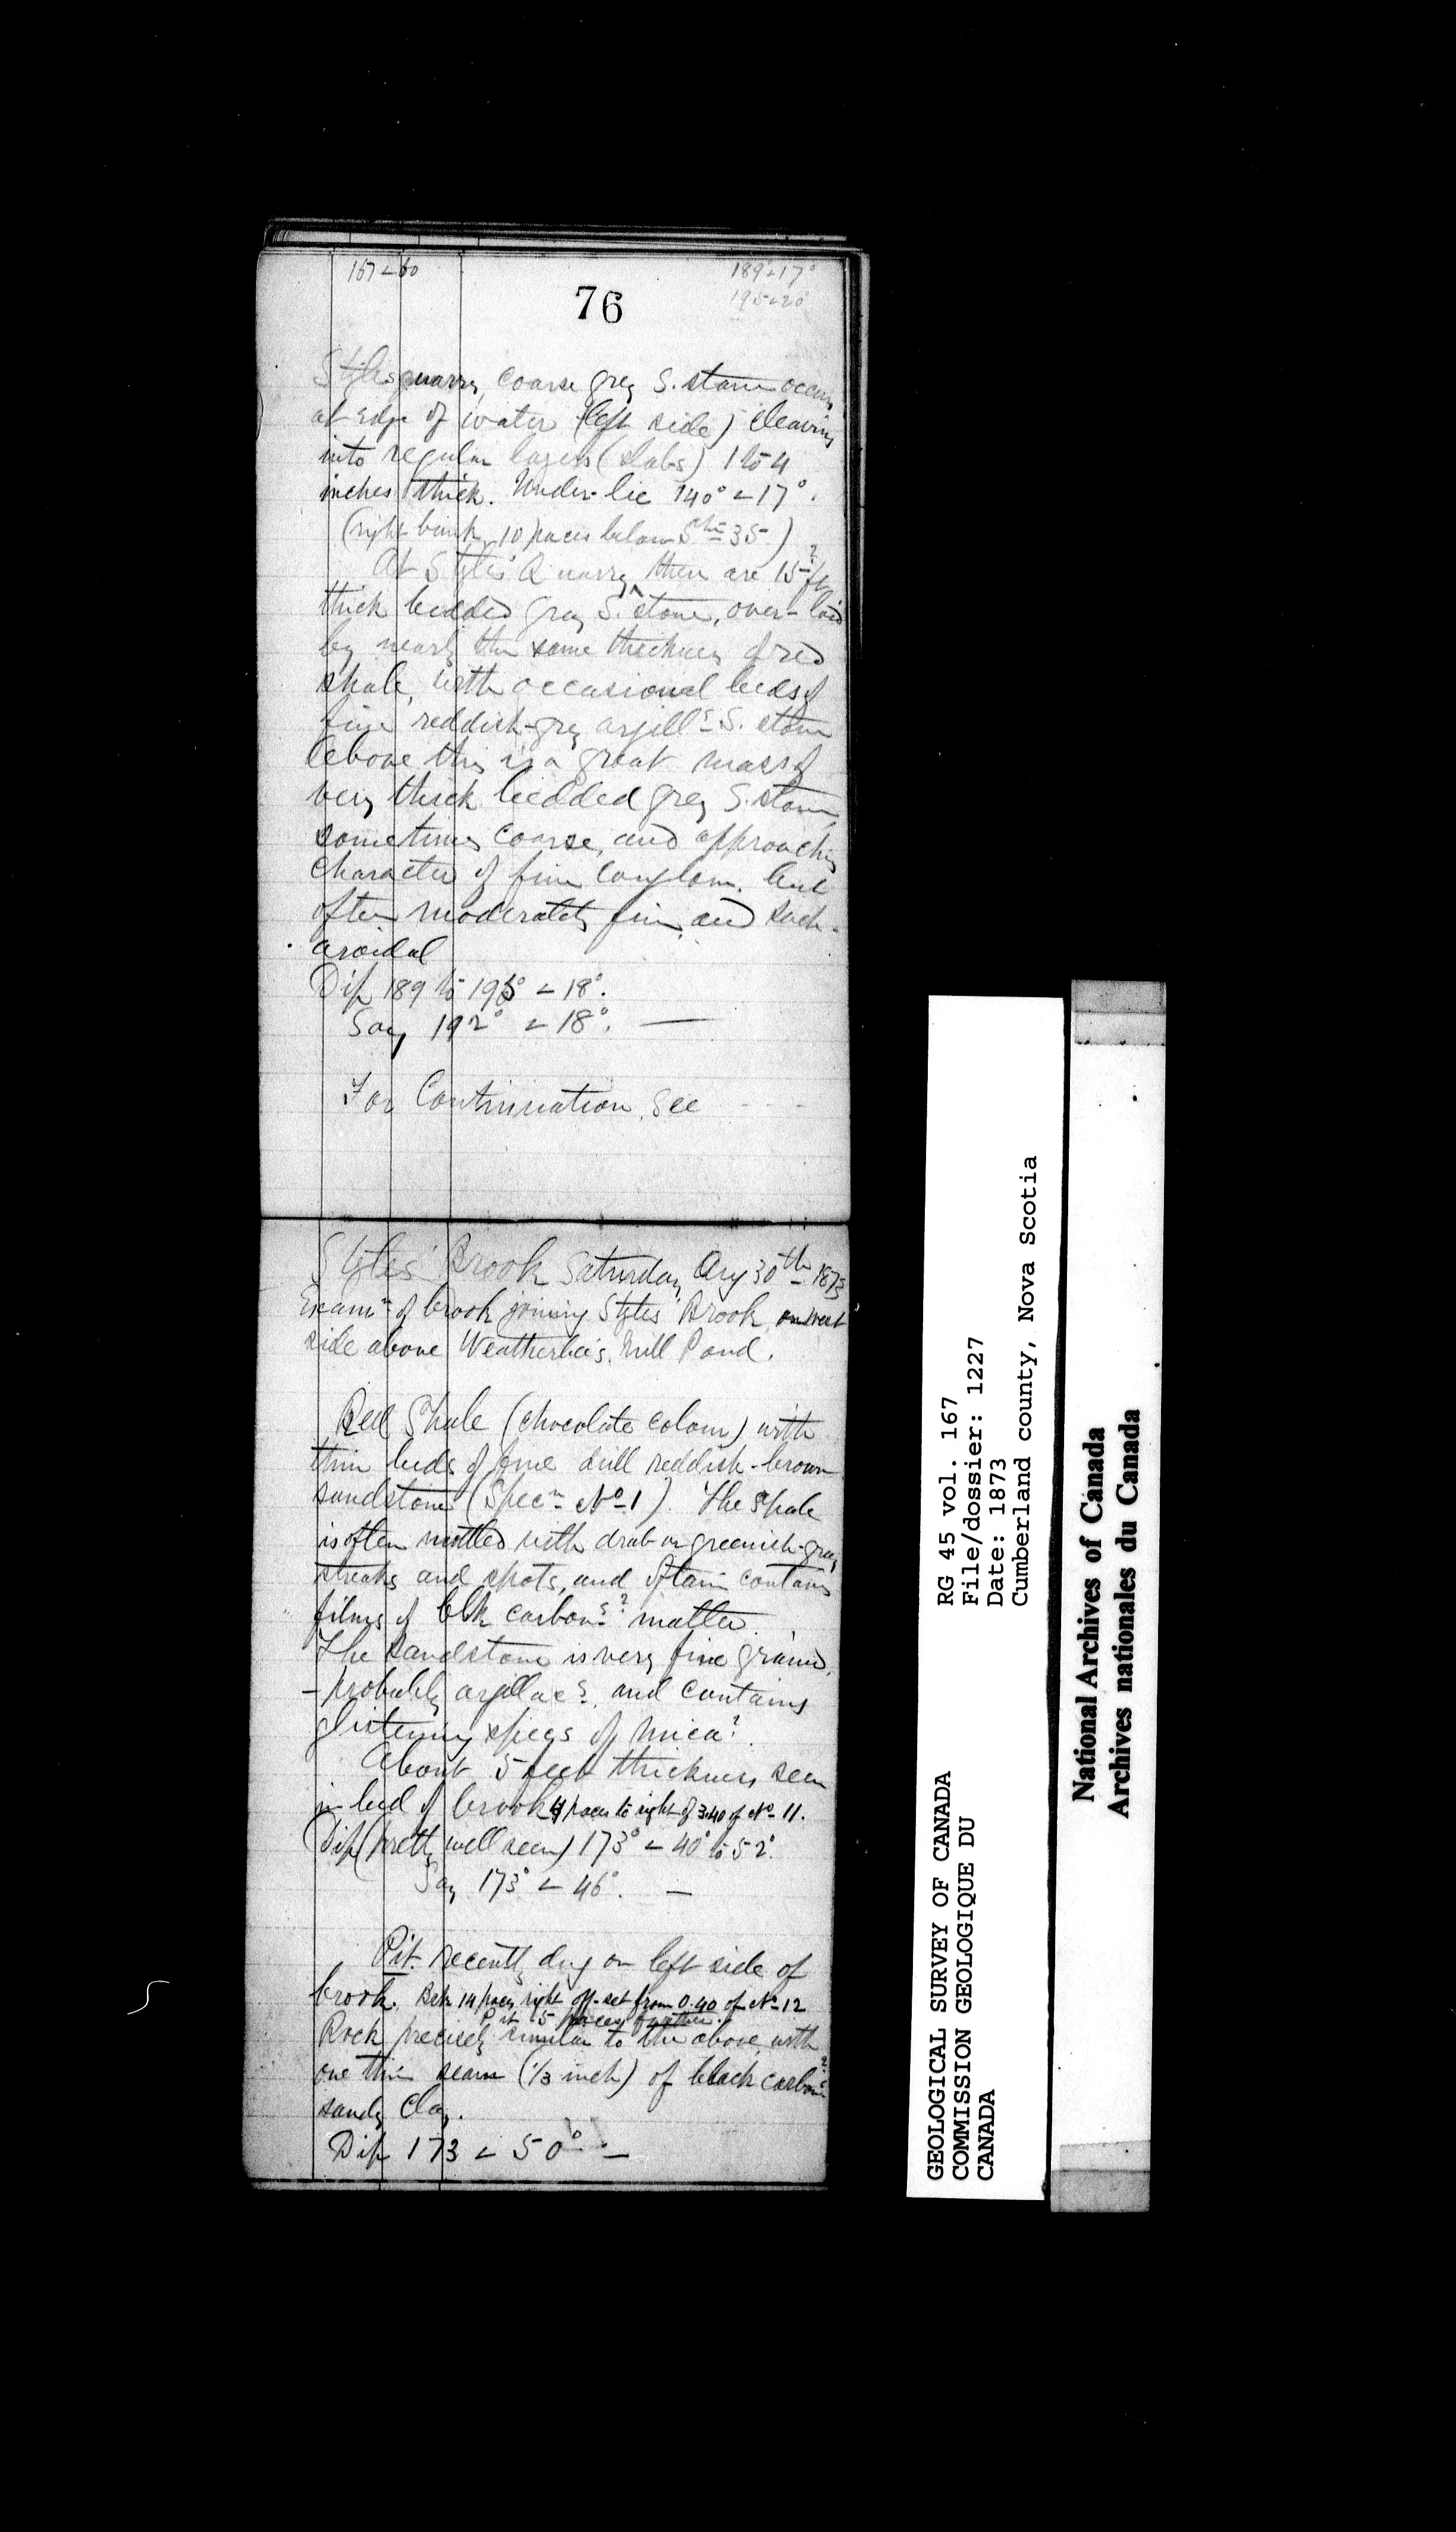 167 ∠ 60
189∠17°
195∠20°
76
Styles quarry, coarse grey S. stone occurs
at edge of water (left side) cleaving
into regular layers (slabs) 1 to 4
inches thick. Under-lie 140° ∠ 17°.
(right bank, 10 paces below 35.)
At Styles' Quarry there are 15 ft?
thick bedded grey S. stone, over-laid
by nearly the same thickness of red
shale, with occasional beds of
fine reddish-grey argills S. stone
Above this is a great mass of
very thick bedded grey S. stone,
sometimes coarse, and approaching
character of fine conglom. but
often moderately fine, and sach-
aroidal
Dip 189 to 195° ∠ 18°.
Say 192° ∠ 18°. —
For Continuation, see - - -
Styles' Brook Saturday Aug 30th 1873
Examn of brook joining Styles' Brook, on west
side above Weatherbee's Mill Pond.
Red Shale (chocolate colour) with
thin beds of fine dull reddish-brown
sandstone (Specn No 1). The Shale
is often mottled with drab or greenish-grey
streaks and spots, and often contains
films of blk carbons? matter.
The sandstone is very fine grained,
- probably argillacs. and contains
glistening specs of mica?.
About 5 feet thickness seen
in bed of brook 4 paces to right of 3.40 of No 11.
Dip (pretty well seen) 173° ∠ 40° to 52°.
Say 173° ∠ 46°. —
Pit. recently dug on left side of
brook. Brk 14 paces right off-set from 0.40 of No 12
Pit 5 paces further.
Rock precisely similar to the above, with
one thin seam (1/3 inch) of black carbons?
sandy clay.
Dip 173 ∠ 50°. —
GEOLOGICAL SURVEY OF CANADA
COMMISSION GEOLOGIQUE DU
CANADA
RG 45 vol. 167
File/dossier: 1227
Date: 1873
Cumberland county, Nova Scotia
National Archives of Canada
Archives nationales du Canada